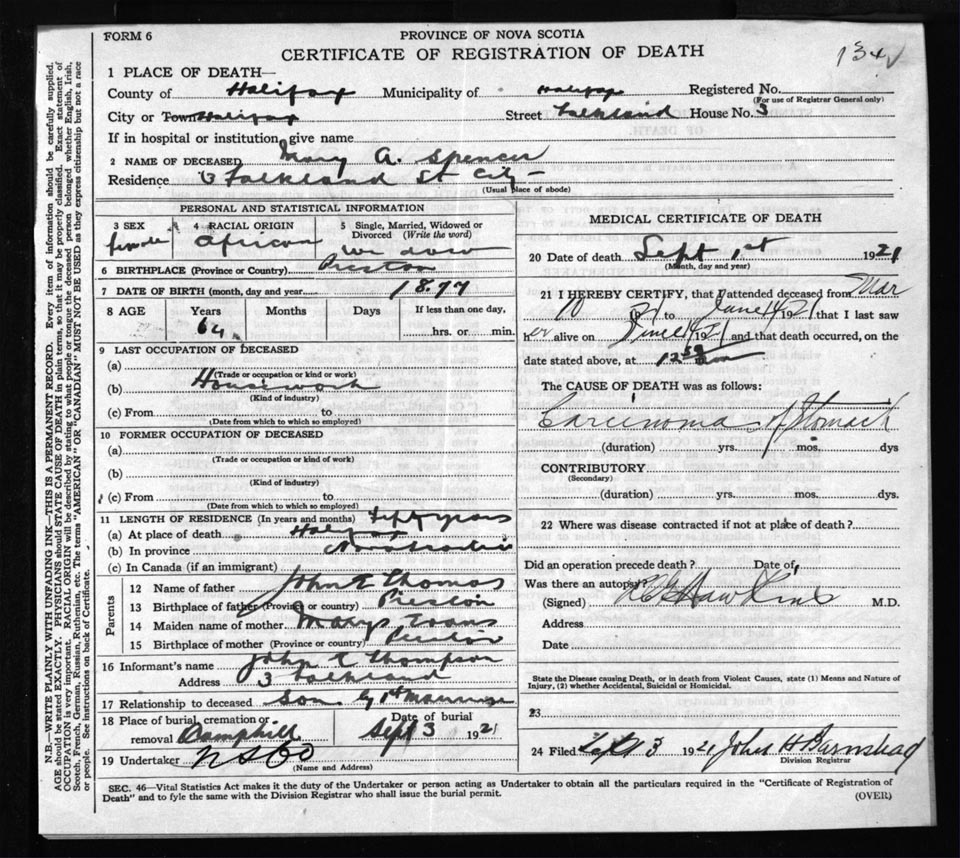 FORM 6
PROVINCE OF NOVA SCOTIA
CERTIFICATE OF REGISTRATION OF DEATH
134
1 PLACE OF DEATH—
County of Halifax Municipality of Halifax Registered No.
(For use of Registrar General only)
City or Town Halifax Street Falkland House No. 3
If in hospital or institution, give name
2 NAME OF DECEASED Mary A. Spencer
Residence 3 Falkland St City—
(Usual place of abode)
PERSONAL AND STATISTICAL INFORMATION
3 SEX female
4 RACIAL ORIGIN African
5 Single, Married, Widowed or Divorced (Write the word) widow
6 BIRTHPLACE (Province or Country) Preston
7 DATE OF BIRTH (month, day and year) 1877
8 AGE Years Months Days If less than one day,
64 hrs. or min.
9 LAST OCCUPATION OF DECEASED
(a)
(Trade or occupation or kind or work)
(b) Housework
(Kind of industry)
(c) From to
(Date from which to which so employed)
10 FORMER OCCUPATION OF DECEASED
(a)
(Trade or occupation or kind of work)
(b)
(Kind of industry)
(c) From to
(Date from which to which so employed)
11 LENGTH OF RESIDENCE (In years and months) years
(a) At place of death Halifax
(b) In province Nova Scotia
(c) In Canada (if an immigrant)
Parents
12 Name of father John Thomas
13 Birthplace of father (Province or country) Preston
14 Maiden name of mother Mary Evans
15 Birthplace of mother (Province or country) Preston
16 Informant's name John Thompson
Address 3 Falkland
17 Relationship to deceased Son by 1st Marriage
18 Place of burial, cremation or removal Camphill
Date of burial Sept 3 1921
19 Undertaker
(Name and Address)
MEDICAL CERTIFICATE OF DEATH
20 Date of death Sept 1st 1921
(Month, day and year)
21 I HEREBY CERTIFY, that I attended deceased from Mar
10 21 to June 1921 that I last saw
her alive on June 1921 and that death occurred, on the
date stated above, at 12
The CAUSE OF DEATH was as follows:
Carcinoma of Stomach
(duration) yrs. mos. dys
CONTRIBUTORY
(Secondary)
(duration) yrs. mos. dys.
22 Where was disease contracted if not at place of death?
Did an operation precede death? Date of
Was there an autopsy?
(Signed) Hawkins M.D.
Address
Date
State the Disease causing Death, or in death from Violent Causes, state (1) Means and Nature of
Injury, (2) whether Accidental, Suicidal or Homicidal.
23
24 Filed Sept 3 1921 John H Barnstead
Division Registrar
SEC. 46—Vital Statistics Act makes it the duty of the Undertaker or person acting as Undertaker to obtain all the particulars required in the "Certificate of Registration of
Death" and to fyle the same with the Division Registrar who shall issue the burial permit.
(OVER)
N.B.—WRITE PLAINLY WITH UNFADING INK—THIS IS A PERMANENT RECORD. Every item of information should be carefully supplied.
AGE should be stated EXACTLY. PHYSICIANS should STATE CAUSE OF DEATH in plain terms, so that it may be properly classified. Exact statement of
OCCUPATION is very important. RACIAL ORIGIN will be described by stating to what people or tongue the deceased person belonged, whether English, Irish,
Scotch, French, German, Russian, Ruthenian, etc. The terms "AMERICAN" OR "CANADIAN" MUST NOT BE USED as they express citizenship but not a race
or people. See instructions on back of Certificate.